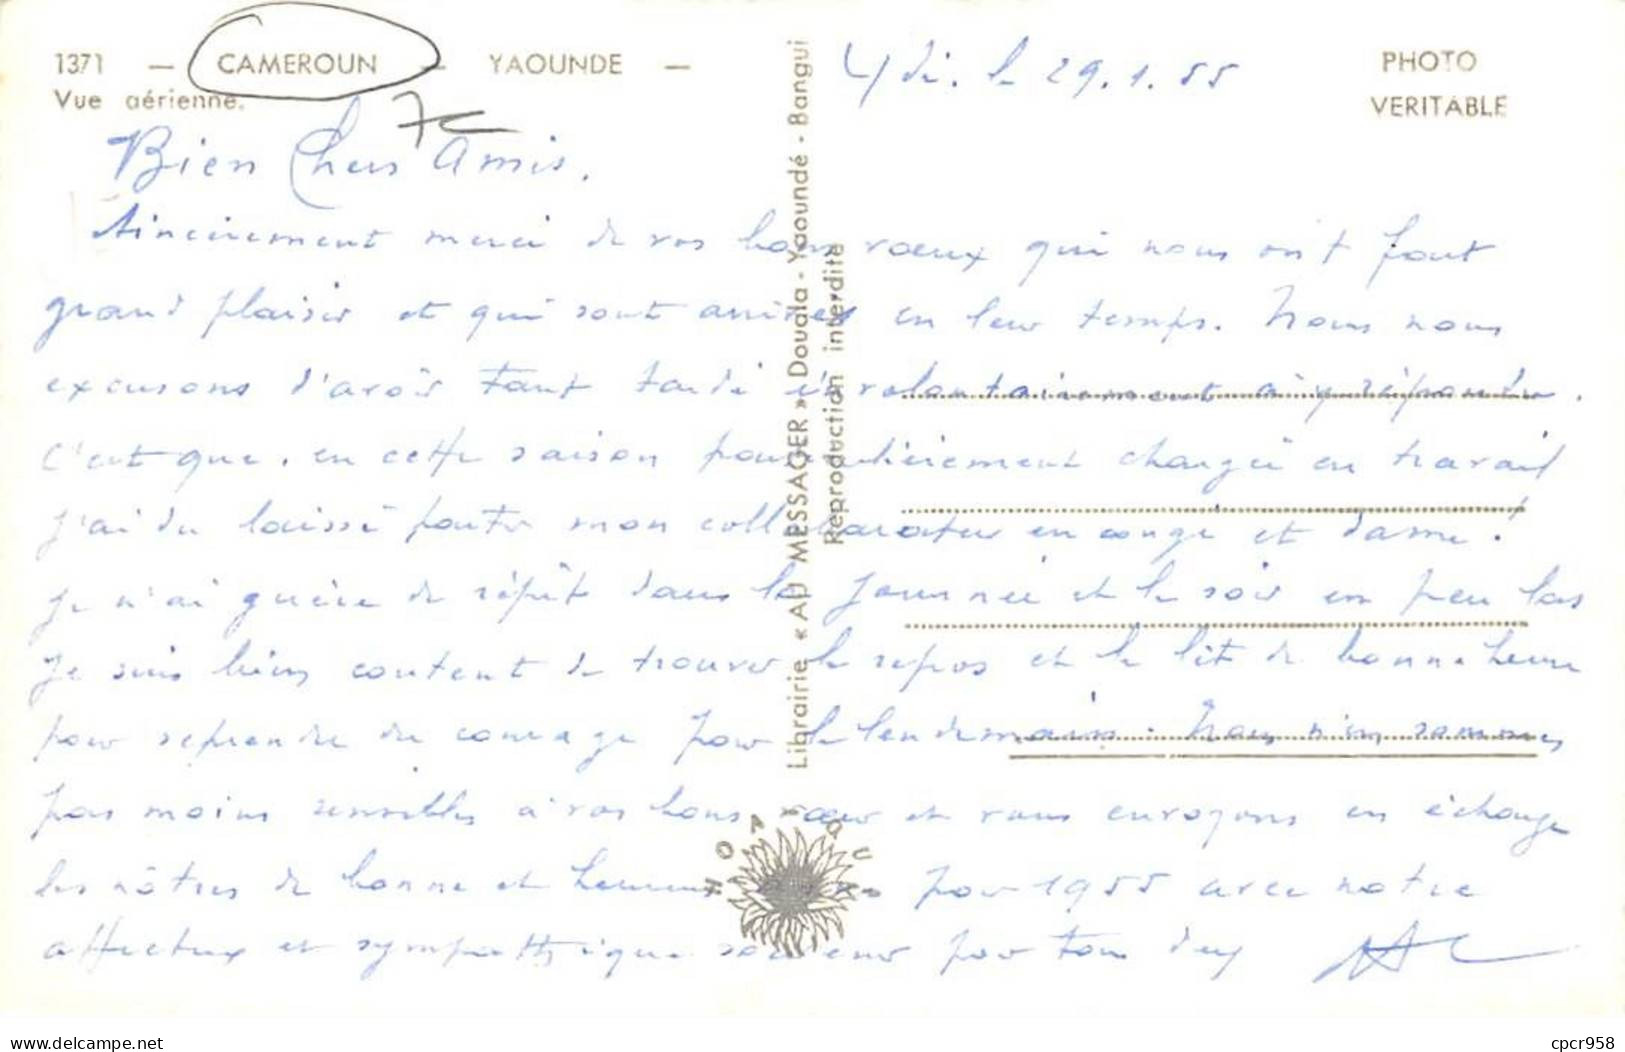 1371 — CAMEROUN — YAOUNDE —
Vue aérienne.
PHOTO
VERITABLE
7€
Ydé. le 29.1.55
Bien Chers Amis.
Sincèrement merci de vos bons vœux qui nous ont fait
grand plaisir et qui sont arrivés en leur temps. Nous nous
excusons d'avoir tant tardé involontairement à y répondre.
C'est que, en cette saison particulièrement chargée en travail
j'ai du laissé partir mon collaborateur en congé et dame!
Je n'ai guère de répit dans la journée et le soir un peu las
Je suis bien content de trouver le repos et le lit de bonne heure
pour reprendre du courage pour le lendemain. Nous n'en sommes
pas moins sensibles à vos bons vœux et vous envoyons en échange
les nôtres de bonne et heureuse pour 1955 avec notre
affectueux et sympathique souvenir pour tous deux
Librairie « AU MESSAGER » Douala - Yaoundé - Bangui
Reproduction interdite
HOA-QUI
delcampe.net
cpcr958